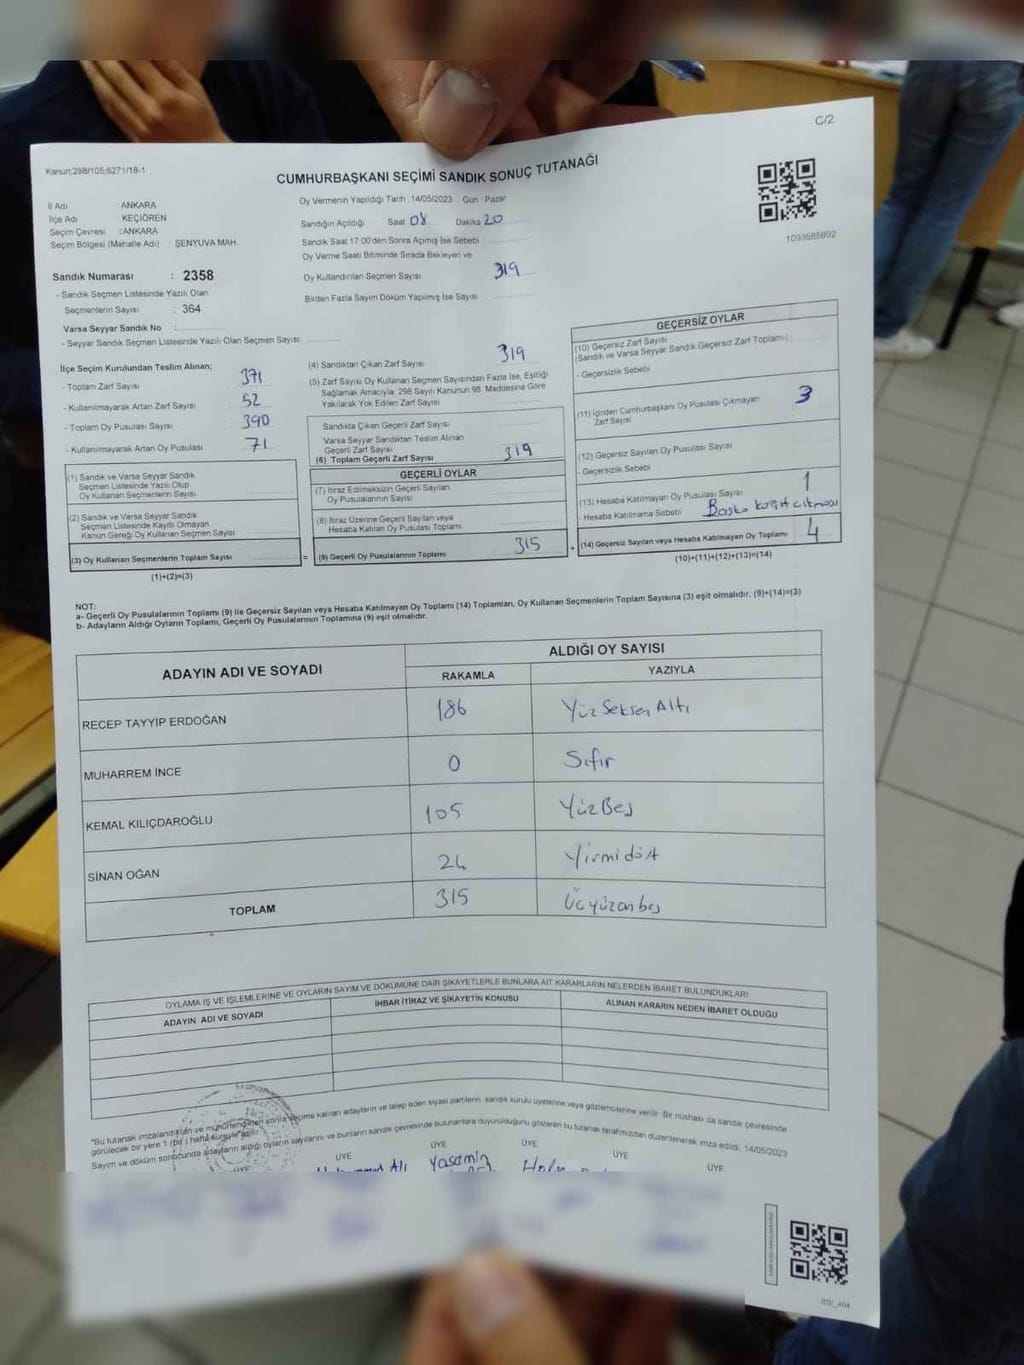 C/2
Kanun;298/105;6271/18-1
CUMHURBAŞKANI SEÇİMİ SANDIK SONUÇ TUTANAĞI
1093685892
İl Adı : ANKARA
İlçe Adı : KEÇİÖREN
Seçim Çevresi : ANKARA
Seçim Bölgesi (Mahalle Adı) : ŞENYUVA MAH.
Sandık Numarası : 2358
- Sandık Seçmen Listesinde Yazılı Olan
Seçmenlerin Sayısı : 364
Varsa Seyyar Sandık No :
- Seyyar Sandık Seçmen Listesinde Yazılı Olan Seçmen Sayısı
Oy Vermenin Yapıldığı Tarih 14/05/2023 Gün Pazar
Sandığın Açıldığı Saat 08 Dakika 20
Sandık Saat 17:00'den Sonra Açılmış İse Sebebi
Oy Verme Saati Bitiminde Sırada Bekleyen ve
Oy Kullandırılan Seçmen Sayısı 319
Birden Fazla Sayım Döküm Yapılmış İse Sayısı
İlçe Seçim Kurulundan Teslim Alınan;
- Toplam Zarf Sayısı : 371
- Kullanılmayarak Artan Zarf Sayısı : 52
- Toplam Oy Pusulası Sayısı : 390
- Kullanılmayarak Artan Oy Pusulası : 71
(1) Sandık ve Varsa Seyyar Sandık
Seçmen Listesinde Yazılı Olup
Oy Kullanan Seçmenlerin Sayısı
(2) Sandık ve Varsa Seyyar Sandık
Seçmen Listesinde Kayıtlı Olmayan
Kanun Gereği Oy Kullanan Seçmen Sayısı
(3) Oy Kullanan Seçmenlerin Toplam Sayısı =
(1)+(2)=(3)
(4) Sandıktan Çıkan Zarf Sayısı 319
(5) Zarf Sayısı Oy Kullanan Seçmen Sayısından Fazla İse, Eşitliği
Sağlamak Amacıyla; 298 Sayılı Kanunun 98. Maddesine Göre
Yakılarak Yok Edilen Zarf Sayısı
Sandıkta Çıkan Geçerli Zarf Sayısı
Varsa Seyyar Sandıktan Teslim Alınan
Geçerli Zarf Sayısı
(6) Toplam Geçerli Zarf Sayısı 319
GEÇERLİ OYLAR
(7) İtiraz Edilmeksizin Geçerli Sayılan
Oy Pusulalarının Sayısı
(8) İtiraz Üzerine Geçerli Sayılan veya
Hesaba Katılan Oy Pusulası Toplamı
(9) Geçerli Oy Pusulalarının Toplamı 315 +
GEÇERSİZ OYLAR
(10) Geçersiz Zarf Sayısı
(Sandık ve Varsa Seyyar Sandık Geçersiz Zarf Toplamı)
- Geçersizlik Sebebi
(11) İçinden Cumhurbaşkanı Oy Pusulası Çıkmayan 3
Zarf Sayısı
(12) Geçersiz Sayılan Oy Pusulası Sayısı
- Geçersizlik Sebebi
(13) Hesaba Katılmayan Oy Pusulası Sayısı 1
- Hesaba Katılmama Sebebi Başka
(14) Geçersiz Sayılan veya Hesaba Katılmayan Oy Toplamı 4
(10)+(11)+(12)+(13)=(14)
NOT:
a- Geçerli Oy Pusulalarının Toplamı (9) ile Geçersiz Sayılan veya Hesaba Katılmayan Oy Toplamı (14) Toplamları, Oy Kullanan Seçmenlerin Toplam Sayısına (3) eşit olmalıdır. (9)+(14)=(3)
b- Adayların Aldığı Oyların Toplamı, Geçerli Oy Pusulalarının Toplamına (9) eşit olmalıdır.
ADAYIN ADI VE SOYADI ALDIĞI OY SAYISI
RAKAMLA YAZIYLA
RECEP TAYYİP ERDOĞAN 186 Yüz Seksen Altı
MUHARREM İNCE 0 Sıfır
KEMAL KILIÇDAROĞLU 105 Yüz Beş
SİNAN OĞAN 24 Yirmi dört
TOPLAM 315 Üçyüzonbeş
OYLAMA İŞ VE İŞLEMLERİNE VE OYLARIN SAYIM VE DÖKÜMÜNE DAİR ŞİKAYETLERLE BUNLARA AİT KARARLARIN NELERDEN İBARET BULUNDUKLARI
ADAYIN ADI VE SOYADI İHBAR İTİRAZ VE ŞİKAYETİN KONUSU ALINAN KARARIN NEDEN İBARET OLDUĞU
"Bu tutanak imzalandıktan ve mühürlendikten sonra seçime katılan adayların ve talep eden siyasi partilerin sandık kurulu üyelerine veya gözlemcilerine verilir. Bir nüshası da sandık çevresinde
görülecek bir yere 1 (bir) hafta süreyle asılır."
Sayım ve döküm sonucunda adayların aldığı oyların sayılarını ve bunların sandık çevresinde bulunanlara duyurulduğunu gösteren bu tutanak tarafımızdan düzenlenerek imza edildi. 14/05/2023
ÜYE ÜYE ÜYE ÜYE ÜYE ÜYE
Ali Yasemin